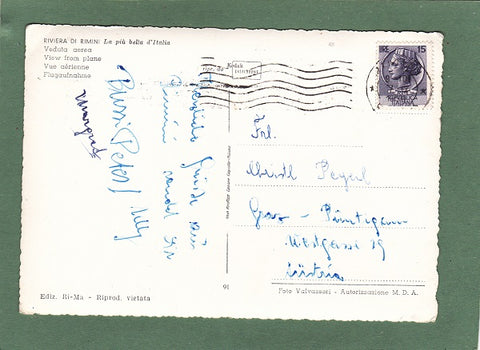 RIVIERA DI RIMINI La più bella d'Italia
Veduta aerea
View from plane
Vue aérienne
Flugaufnahme
Kodak
15
Herzliche Grüße aus
Rimini sendet Dir
Bussi Peter/ Lilly
Margret
Frl.
Peyerl
Graz - Puntigam
19
Austria
Ediz. Ri-Ma - Riprod. vietata
91
Foto Valvassosi - Autorizzazione M. D. A.